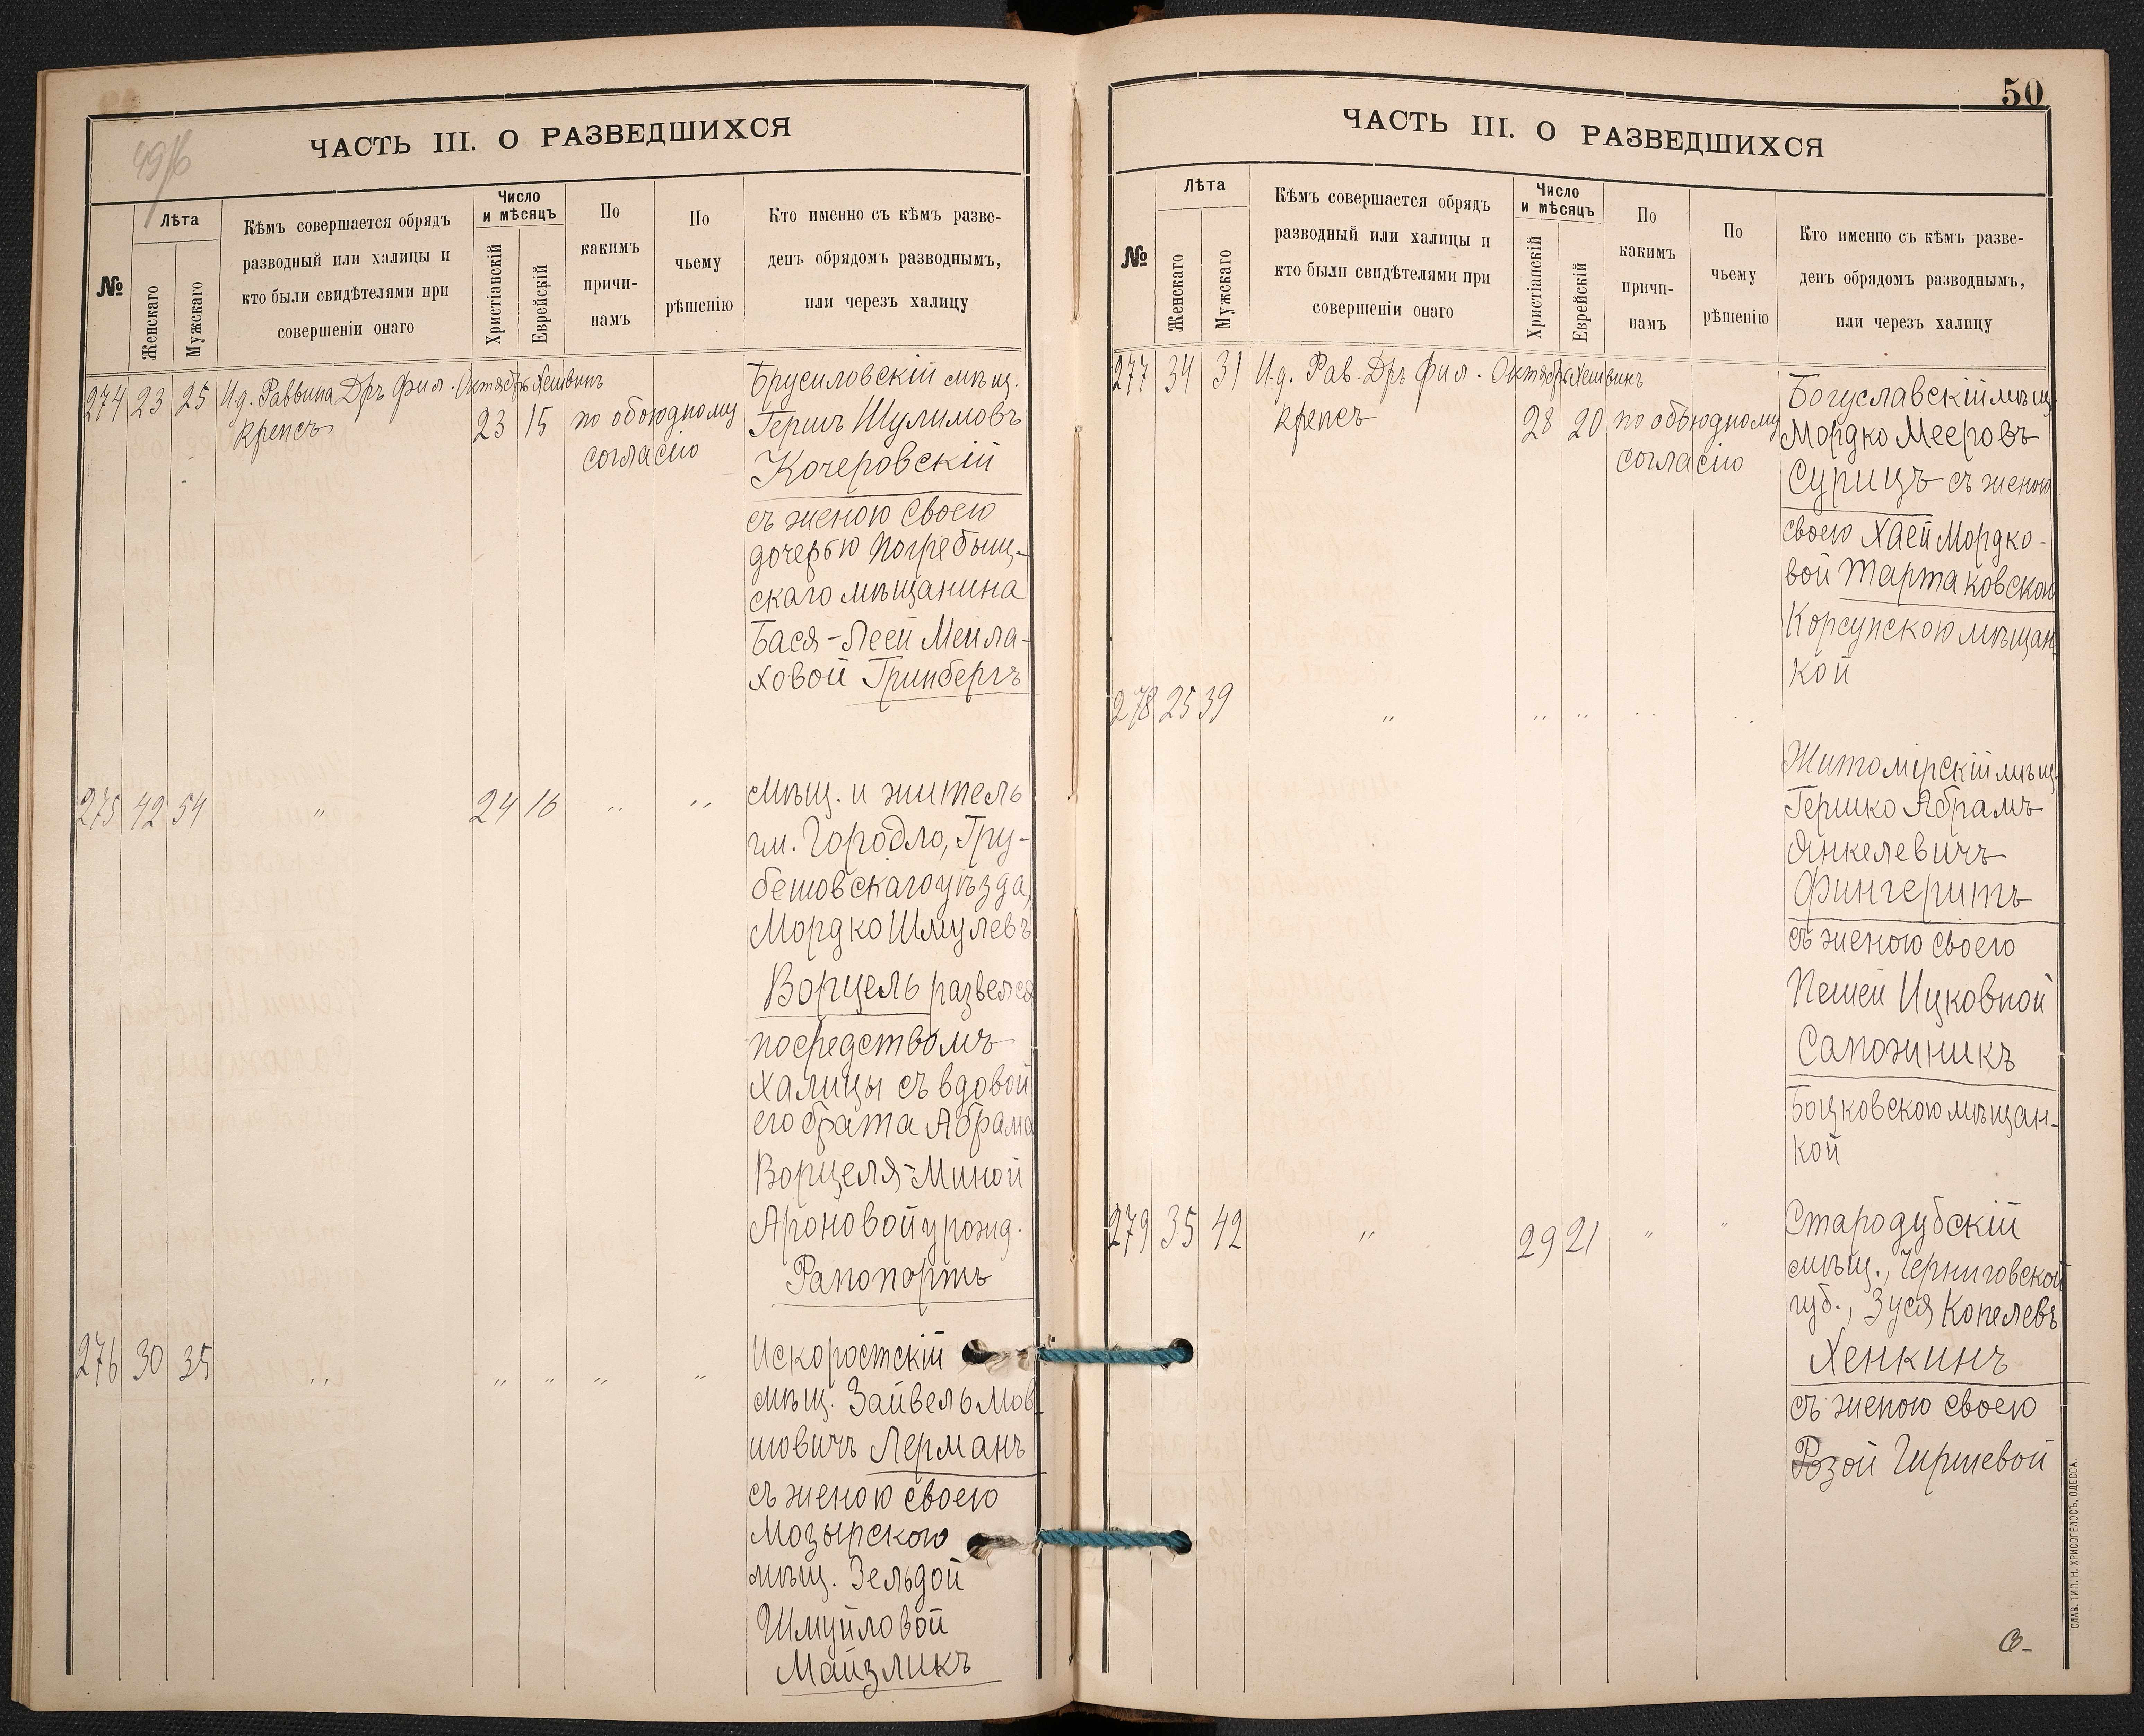 49/б
ЧАСТЬ III. О РАЗВЕДШИХСЯ
№
Лѣта
Женскаго
Мужскаго
Кѣмъ совершается обрядъ
разводный или халицы и
кто были свидѣтелями при
совершеніи онаго
Число
и мѣсяцъ
Христіанскій
Еврейскій
По
какимъ
причи-
намъ
По
чьему
рѣшенію
Кто именно съ кѣмъ разве-
денъ обрядомъ разводнымъ,
или черезъ халицу
274 23 25 И.д. Раввина Др. фил. Октябрь Хешвинъ
Крепсъ 23 15 по обоюдному
согласію
Брусиловскій мѣщ.
Гершъ Шулимовъ
Кочеровскій
съ женою своею
дочерью Погребыщ-
скаго мѣщанина
Бася-Леей Мейла-
ховой Гринбергъ
275 42 54 " 24 16 " "
Мѣщ. и житель
гм. Городло, Гру-
бешовскаго уѣзда,
Мордко Шмулевъ
Ворцель развелся
посредствомъ
халицы съ вдовой
его брата Абрама
Ворцеля-Миной
Ароновой урожд.
Рапопортъ
276 30 35 " " " " "
Искоростскій
мѣщ. Зайвель Мов
шовичъ Лерманъ
съ женою своею
Мозырскою
мѣщ. Зельдой
Шмуйловой
Майзликъ
50
ЧАСТЬ III. О РАЗВЕДШИХСЯ
№
Лѣта
Женскаго
Мужскаго
Кѣмъ совершается обрядъ
разводный или халицы и
кто были свидѣтелями при
совершеніи онаго
Число
и мѣсяцъ
Христіанскій
Еврейскій
По
какимъ
причи-
намъ
По
чьему
рѣшенію
Кто именно съ кѣмъ разве-
денъ обрядомъ разводнымъ,
или черезъ халицу
277 34 31 И.д. Рав. Др. фил. Октябрь Хешвинъ
Крепсъ 28 20 по обоюдному
согласію
Богуславскій мѣщ.
Мордко Мееровъ
Сурицъ съ женою
своею Хаей Мордко-
вой Тартаковскою
Корсунскою мѣщан
кой
278 25 39 " " " " "
Житомірскій мѣщ.
Гершко Абрамъ
Янкелевичъ
Фингеритъ
съ женою своею
Пешей Ицковной
Сапожникъ
Боцковскою мѣщан-
кой
279 35 42 " 29 21 " "
Стародубскій
мѣщ., Черниговской
губ., Зуся Копелевъ
Хенкинъ
съ женою своею
Розой Гиршевой
СЛАВ. ТИП. Н. ХРИСОГЕЛОСЪ, ОДЕССА.